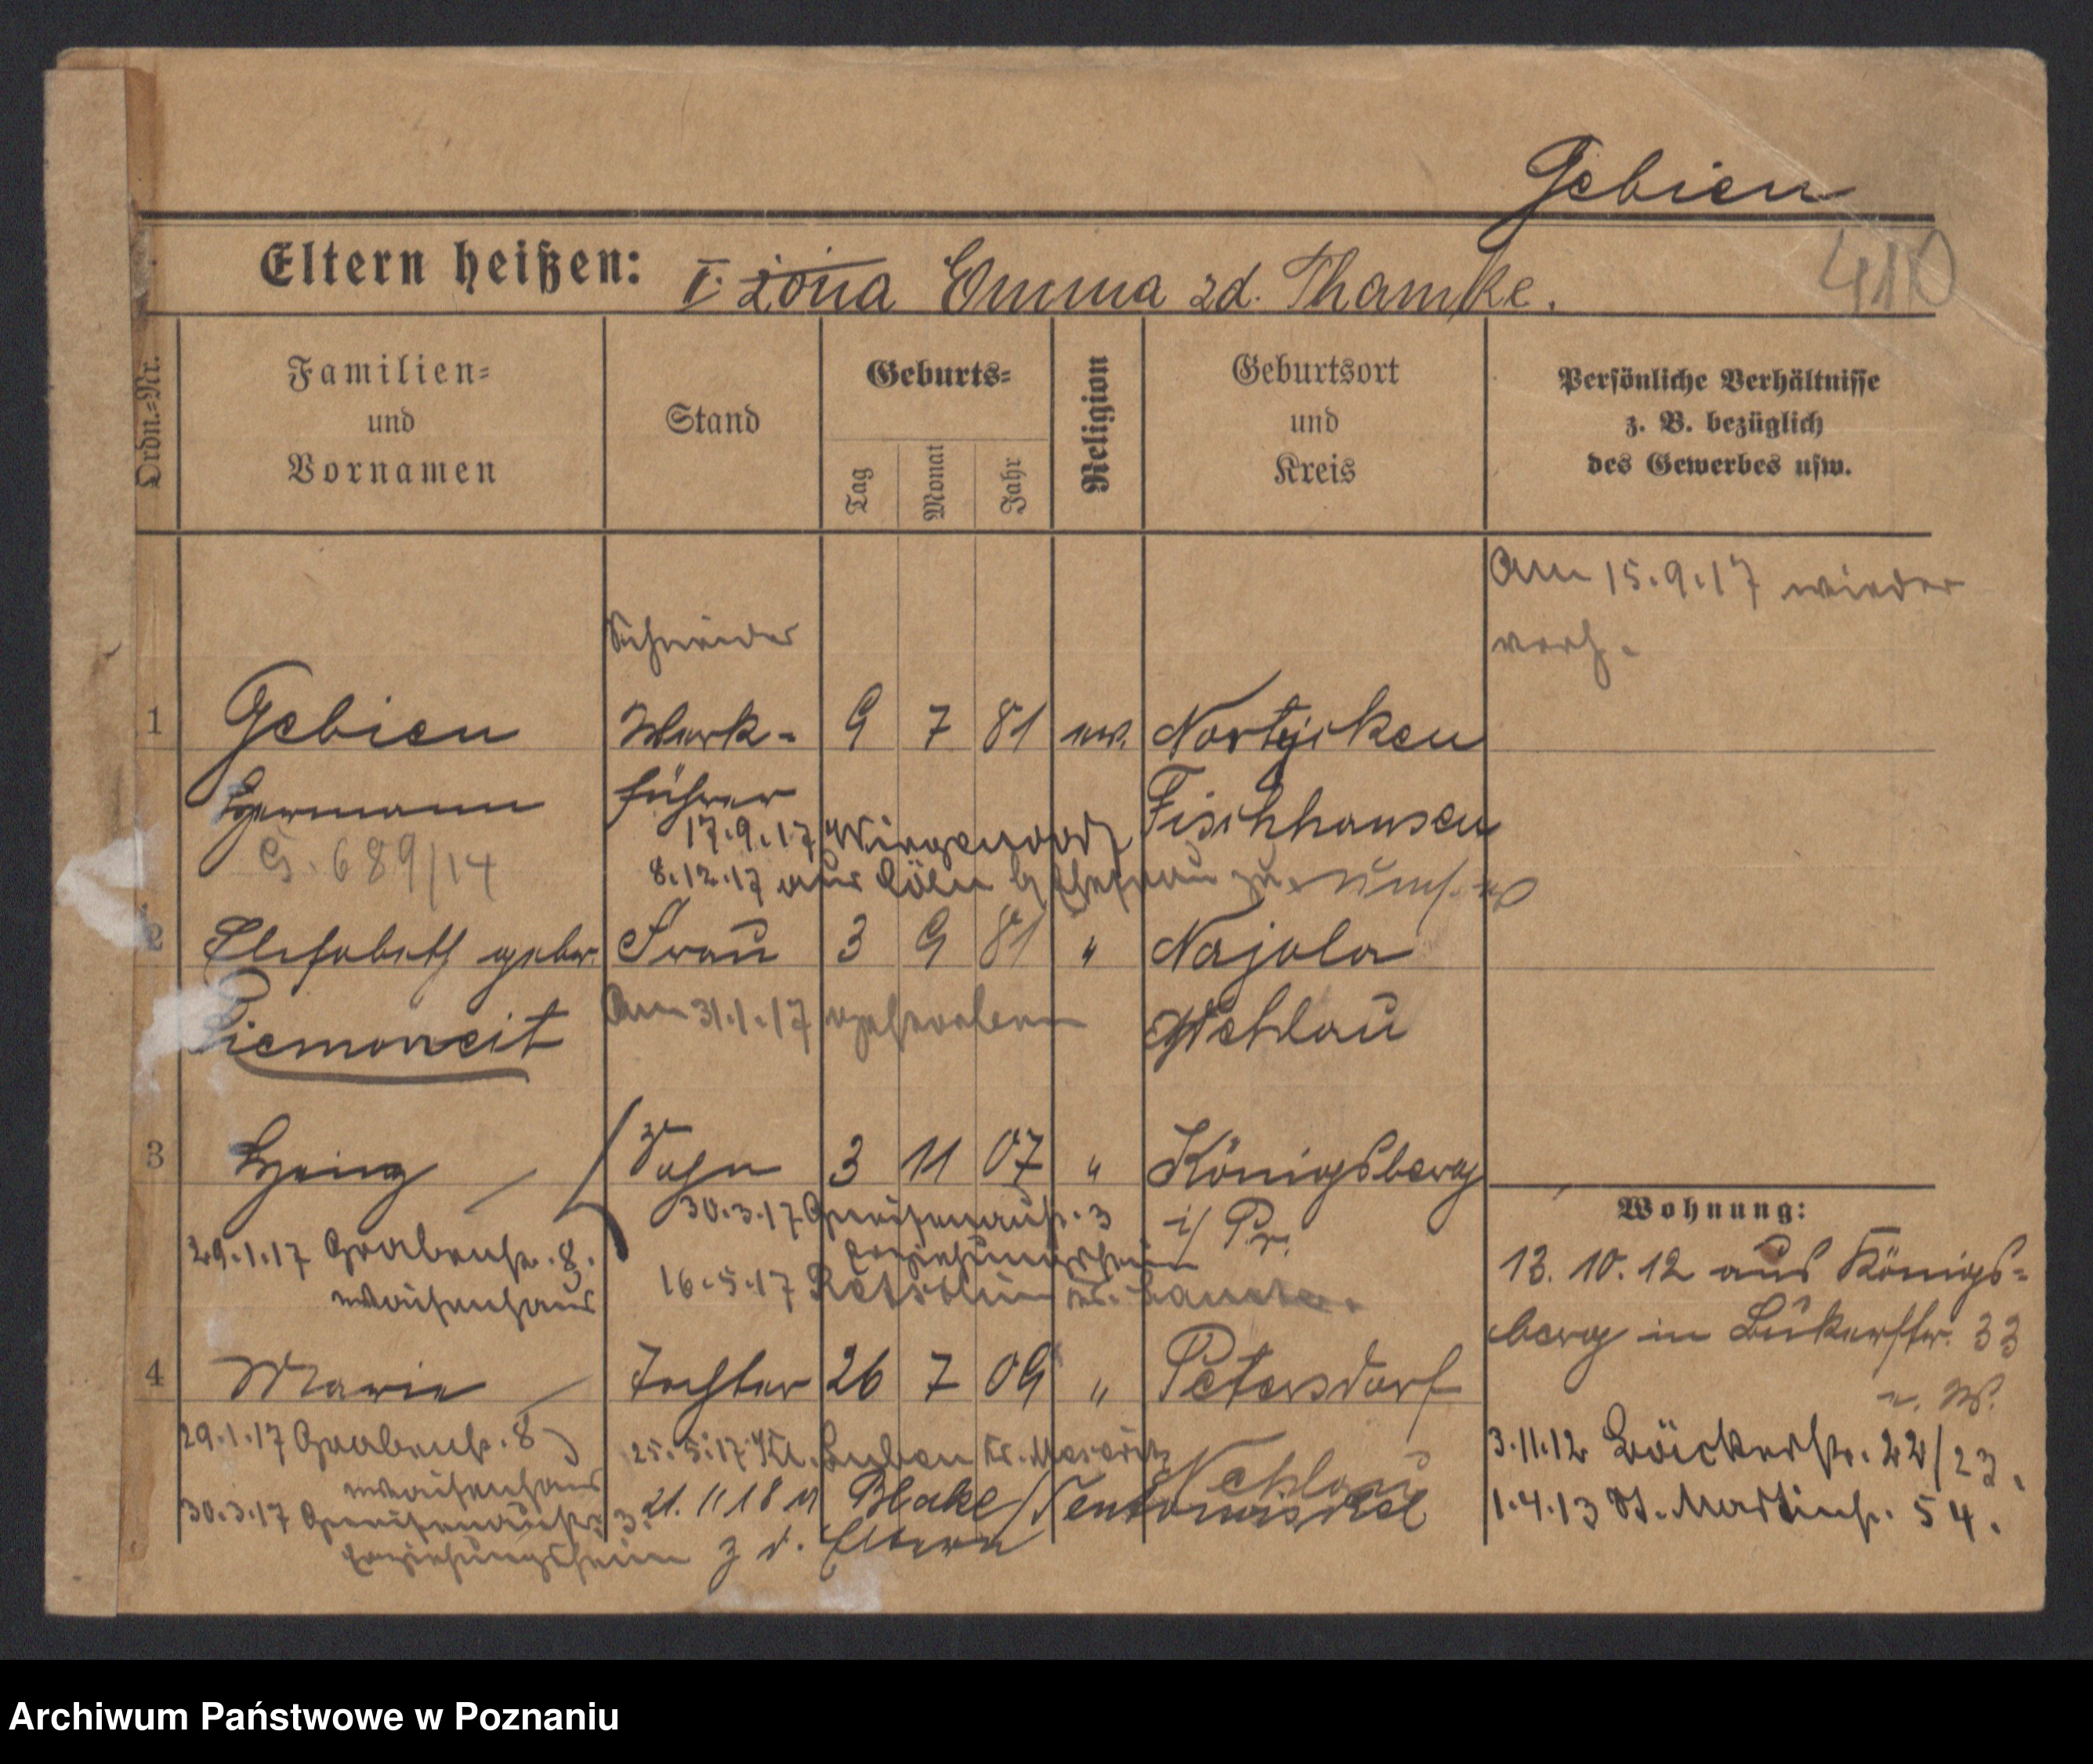 Gebien
410
Eltern heißen: I. żona Emma zd. Thamke.
Ordn.-Nr.
Familien-
und
Vornamen
Stand
Geburts-
Tag
Monat
Jahr
Religion
Geburtsort
und
Kreis
Persönliche Verhältnisse
z. B. bezüglich
des Gewerbes usw.
Am 15.9.17 wieder
verh.
Schneider
1 Gebien Werk- 9 7 81 ev. Nortycken
Hermann führer Fischhausen
17.9.17
G. 689/14
8.12.17 aus Cöln
2 Elisabeth gebor. Frau 3 9 81 " Najola
Piemonceit Am 31.1.17 gestorben Wehlau
3 Heinz Sohn 3 11 07 " Königsberg
30.3.17 Gneisenaustr. 3 i/Pr.
Erziehungsheim
29.1.17 Grabenstr. 8.
Waisenhaus
16.5.17
Wohnung:
13.10.12 aus Königs-
berg in Bükerstr. 33
4 Marie Tochter 26 7 09 " Petersdorf
Wehlau
29.1.17 Grabenstr. 8
Waisenhaus
25.5.17 Kl. Luben Kr.
30.3.17 Gneisenaustr. 3.
Erziehungsheim
21.11.18 Blake/
z d. Eltern
3.11.12 Bäckerstr. 22/23.
1.4.13 St. Martinstr. 54.
Archiwum Państwowe w Poznaniu